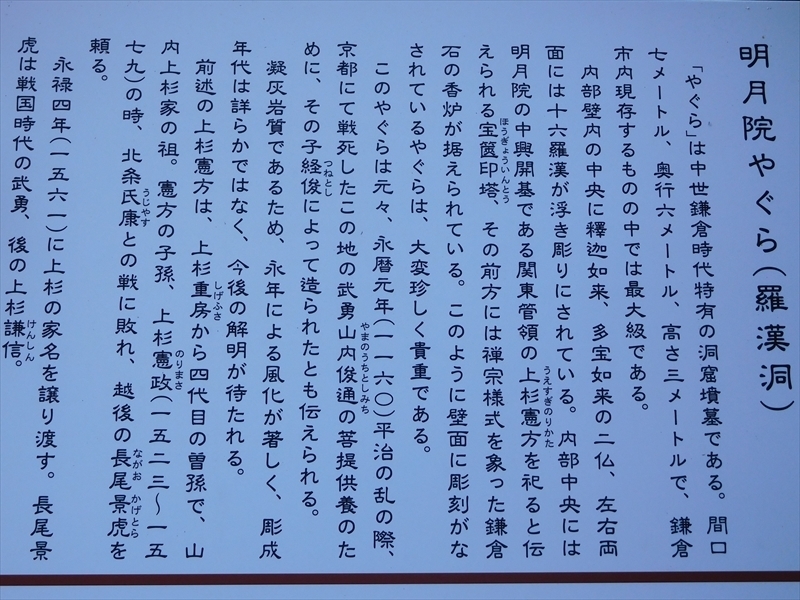 明月院やぐら(羅漢洞)
「やぐら」は中世鎌倉時代特有の洞窟墳墓である。間口
七メートル、奥行六メートル、高さ三メートルで、鎌倉
市内現存するものの中では最大級である。
内部壁内の中央に釋迦如来、多宝如来の二仏、左右両
面には十六羅漢が浮き彫りにされている。内部中央には
明月院の中興開基である関東管領の上杉憲方を祀ると伝
うえすぎのりかた
えられる宝篋印塔、その前方には禅宗様式を象った鎌倉
ほうぎょういんとう
石の香炉が据えられている。このように壁面に彫刻がな
されているやぐらは、大変珍しく貴重である。
このやぐらは元々、永暦元年(一一六〇)平治の乱の際、
京都にて戦死したこの地の武勇山内俊通の菩提供養のた
やまのうちとしみち
めに、その子経俊によって造られたとも伝えられる。
つねとし
凝灰岩質であるため、永年による風化が著しく、彫成
年代は詳らかではなく、今後の解明が待たれる。
前述の上杉憲方は、上杉重房から四代目の曽孫で、山
しげふさ
内上杉家の祖。憲方の子孫、上杉憲政(一五二三~一五
のりまさ
七九)の時、北条氏康との戦に敗れ、越後の長尾景虎を
うじやす
ながお かげとら
頼る。
永禄四年(一五六一)に上杉の家名を譲り渡す。長尾景
虎は戦国時代の武勇、後の上杉謙信。
けんしん